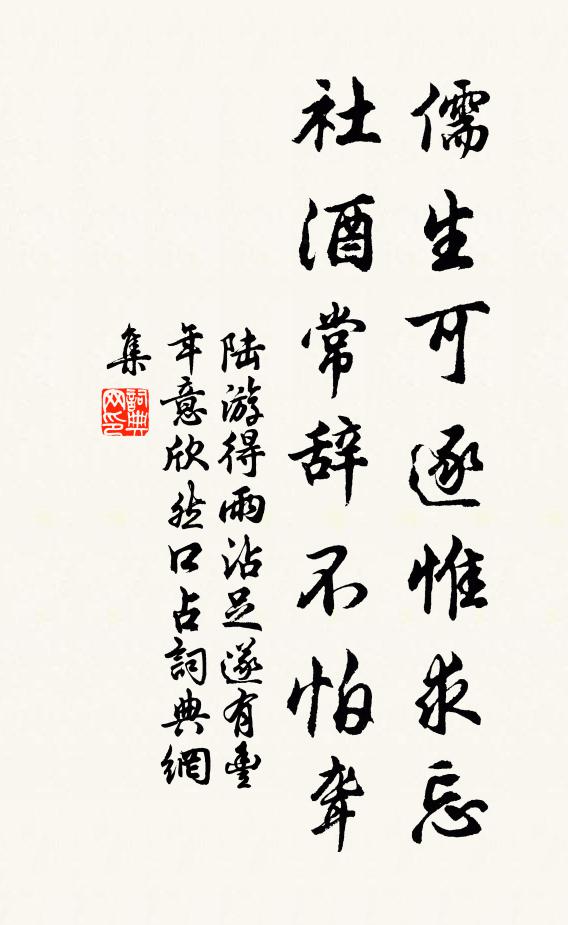 儒生可逐惟求忘
社酒常辞不怕聋
陆游得雨沾足遂有豐
年意欣然口占詞典網
集
詞典网印